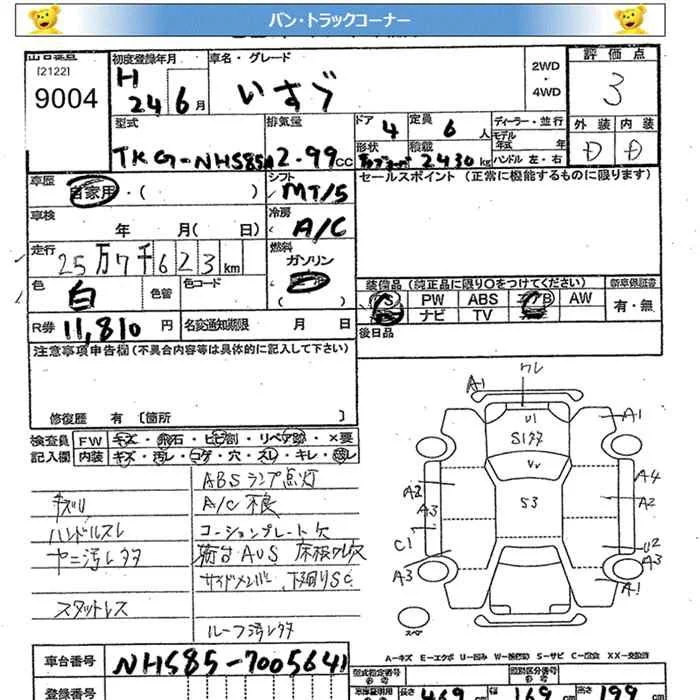 バン・トラックコーナー
[2122]
9004
初度登録年月
H
24 6月
車名・グレード
いすゞ
2WD
・
4WD
評価点
3
外装 内装
D D
型式
TKG-NHS85A
排気量
2.99cc
ドア
4
定員
6人
形状
積載
2430kg
ディーラー・並行
モデル
年式 年
ハンドル 左・右
車歴
自家用・( )
シフト
MT/5
セールスポイント (正常に機能するものに限ります)
車検
年 月( 日)
冷房
A/C
走行
25万7千623km
燃料
ガソリン
( )
色
白
色替
色コード
装備品 (純正品に限り○をつけてください)
新車保証書
PW ABS AW
ナビ TV
有・無
R券 11,810円
名変通知期限 月 日
後日品
注意事項申告欄(不具合内容等は具体的に記入して下さい)
修復歴 有 [箇所 ]
検査員 FW キズ・飛石・ヒビ割・リペア跡・×要
記入欄 内装 キズ・汚レ・コゲ・穴・スレ・キレ・
ABSランプ点灯
キズリ
A/C不良
ハンドルスレ
コーションプレート欠
ヤニ汚レタタ
サイドメンバ、下廻りSC
スタットレス
ルーフ汚レタタ
ワレ
A1
A1
U1
Sサタ
A4
A2
A2
A3
S3
C1
U2
A3
A3
A1
スペア
A−キズ E−エクボ U−凹み W−補修跡 S−サビ C−腐食 XX−交換済
車台番号
NHS85-7005641
登録番号
型式指定番号
類別区分番号
長さ 469cm
幅 169cm
高さ 199cm